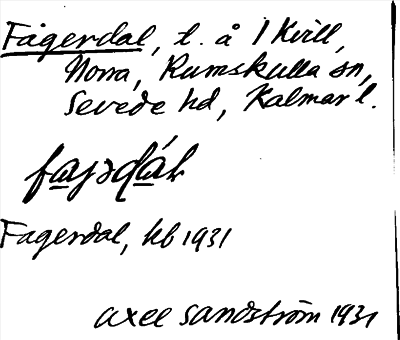 Fagerdal, t. å 1 Kvill,
Norra, Rumskulla sn,
Sevede hd, Kalmar l.
faɡədál
Fagerdal, kb 1931
Axel Sandström 1931